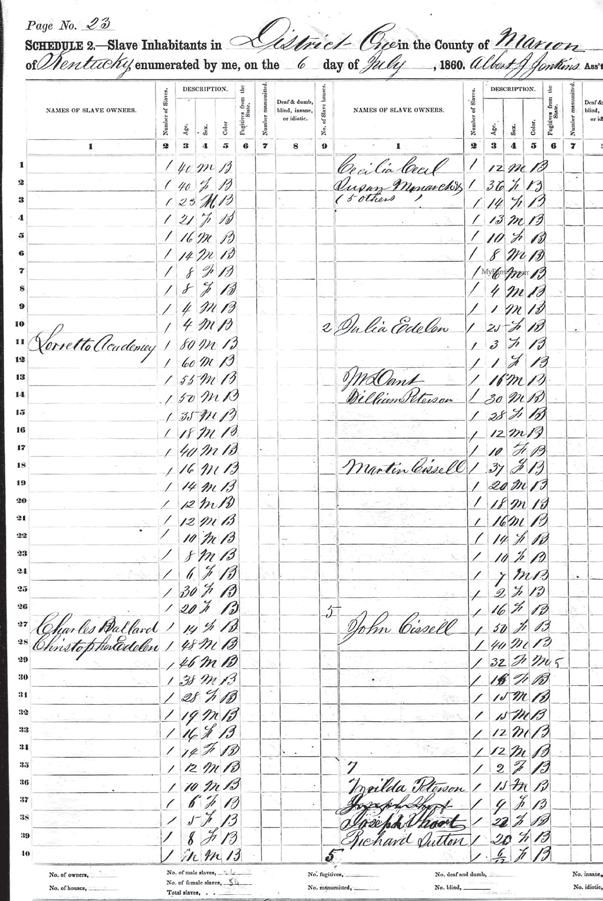 Page No. 23
SCHEDULE 2.—Slave Inhabitants in District One in the County of Marion
of Kentucky, enumerated by me, on the 6 day of July, 1860. Albert J Jenkins Ass't
NAMES OF SLAVE OWNERS. Number of Slaves. DESCRIPTION. Age. Sex. Color Fugitives from the State. Number manumitted. Deaf & dumb, blind, insane, or idiotic. No. of Slave houses. NAMES OF SLAVE OWNERS. Number of Slaves. DESCRIPTION. Age. Sex. Color. Fugitives from the State. Number manumitted.
1 2 3 4 5 6 7 8 9 1 2 3 4 5 6 7
1 1 40 M B Cecilia Cecil 1 12 M B
2 1 40 F B Susan Monarch & 1 36 F B
3 1 23 M B (5 others) 1 14 F B
4 1 21 F B 1 13 M B
5 1 16 M B 1 10 F B
6 1 14 M B 1 8 M B
7 1 8 F B 1 6 M B
8 1 8 F B 1 4 M B
9 1 4 M B 1 1 M B
10 1 4 M B 2 Julia Edelen 1 25 F B
11 Lorretto Academey 1 80 M B 1 3 F B
12 1 60 M B 1 1 F B
13 1 55 M B 1 16 M B
14 1 50 M B William Peterson 1 30 M B
15 1 35 M B 1 28 F B
16 1 18 M B 1 12 M B
17 1 40 M B 1 10 F B
18 1 16 M B Martin Cissell 1 37 F B
19 1 14 M B 1 20 M B
20 1 12 M B 1 18 M B
21 1 12 M B 1 16 M B
22 1 10 M B 1 14 F B
23 1 8 M B 1 10 F B
24 1 6 F B 1 7 M B
25 1 30 F B 1 2 F B
26 1 20 F B 5 1 16 F B
27 Charles Ballard 1 14 F B John Cissell 1 50 F B
28 Christopher Edelen 1 48 M B 1 40 M B
29 1 46 M B 1 32 F M 5
30 1 38 M B 1 F B
31 1 28 F B 1 15 M B
32 1 19 M B 1 15 M B
33 1 16 F B 1 12 M B
34 1 14 F B 1 12 M B
35 1 12 M B 7 1 2 F B
36 1 10 M B Peterson 1 15 M B
37 1 6 F B 1 9 F B
38 1 5 F B Joseph 1 F B
39 1 8 F B Richard Sutton 1 20 F B
40 1 M B 5 1 F B
No. of owners, No. of male slaves, No. fugitives, No. deaf and dumb, No. insane,
No. of houses, No. of female slaves, No. manumitted, No. blind, No. idiotic,
Total slaves,